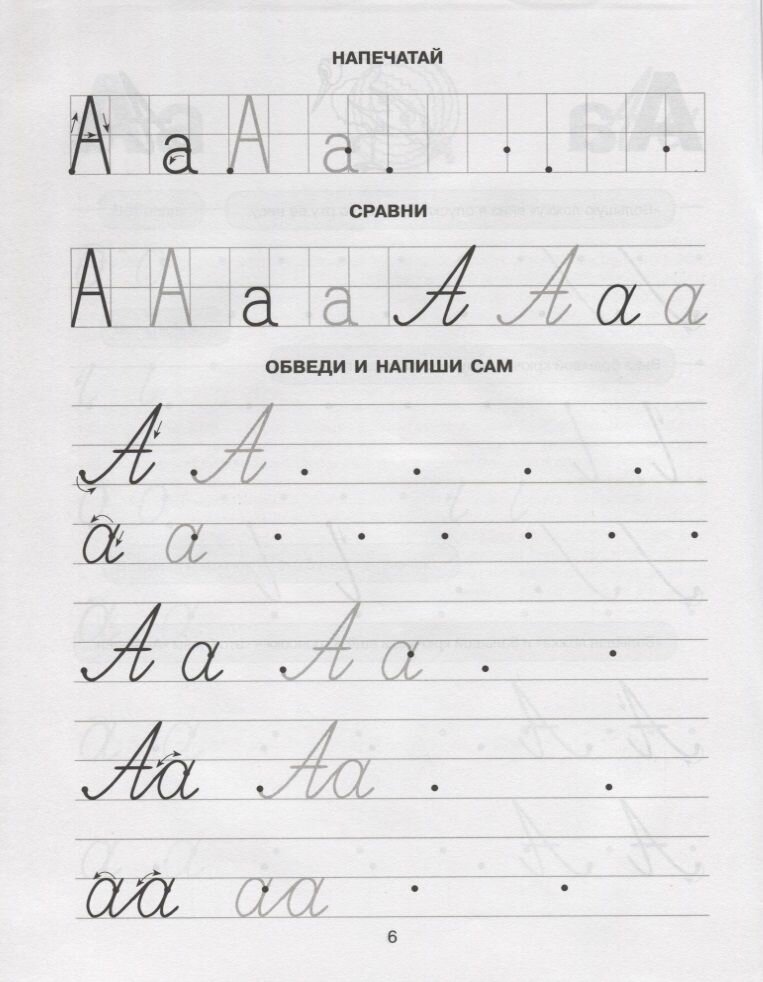 НАПЕЧАТАЙ
А а А а
СРАВНИ
А А а а А А а а
ОБВЕДИ И НАПИШИ САМ
А А
а а
А а А а
Аа Аа
аа аа
6